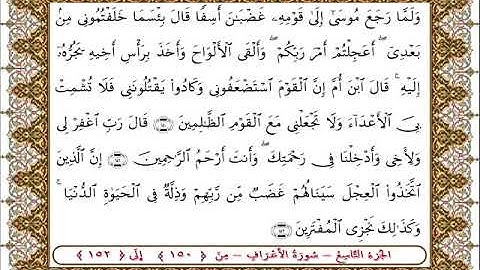 وَلَمَّا رَجَعَ مُوسَىٰٓ إِلَىٰ قَوْمِهِۦ غَضْبَٰنَ أَسِفًا قَالَ بِئْسَمَا خَلَفْتُمُونِي مِنۢ
بَعْدِيٓ ۖ أَعَجِلْتُمْ أَمْرَ رَبِّكُمْ ۖ وَأَلْقَى ٱلْأَلْوَاحَ وَأَخَذَ بِرَأْسِ أَخِيهِ يَجُرُّهُۥٓ
إِلَيْهِ ۚ قَالَ ٱبْنَ أُمَّ إِنَّ ٱلْقَوْمَ ٱسْتَضْعَفُونِي وَكَادُوا۟ يَقْتُلُونَنِي فَلَا تُشْمِتْ
بِيَ ٱلْأَعْدَآءَ وَلَا تَجْعَلْنِي مَعَ ٱلْقَوْمِ ٱلظَّٰلِمِينَ ۝١٥٠ قَالَ رَبِّ ٱغْفِرْ لِي
وَلِأَخِي وَأَدْخِلْنَا فِي رَحْمَتِكَ ۖ وَأَنتَ أَرْحَمُ ٱلرَّٰحِمِينَ ۝١٥١ إِنَّ ٱلَّذِينَ
ٱتَّخَذُوا۟ ٱلْعِجْلَ سَيَنَالُهُمْ غَضَبٌ مِّن رَّبِّهِمْ وَذِلَّةٌ فِي ٱلْحَيَوٰةِ ٱلدُّنْيَا ۚ
وَكَذَٰلِكَ نَجْزِي ٱلْمُفْتَرِينَ ۝١٥٢
الجزء التاسع - سورة الأعراف - من ﴿ ١٥٠ ﴾ إلى ﴿ ١٥٢ ﴾